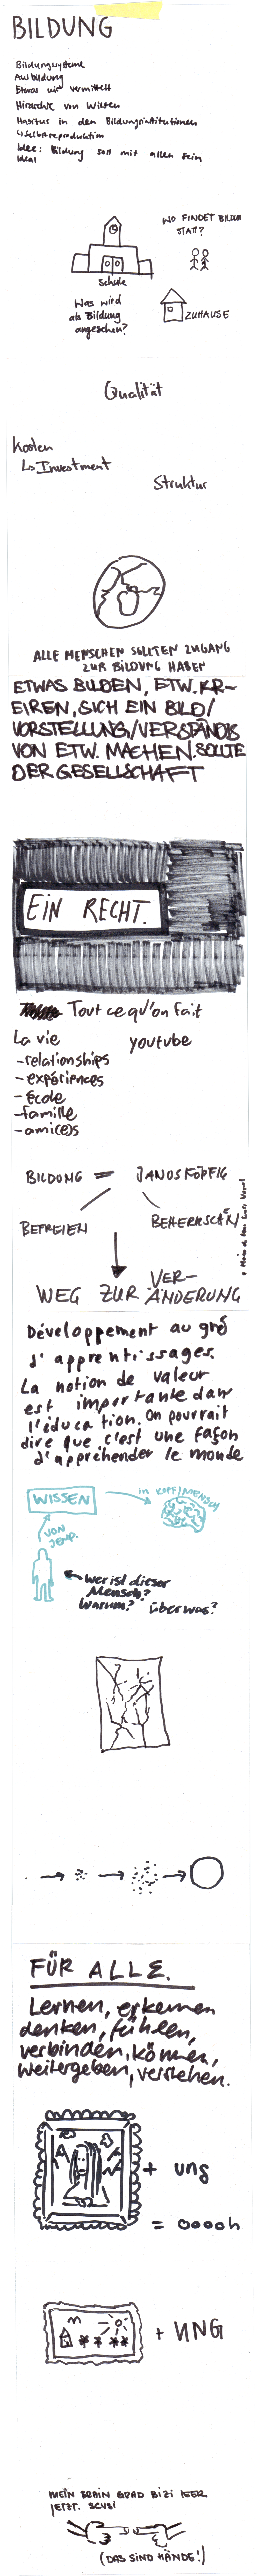 BILDUNG
Bildungssysteme
Ausbildung
Etwas wird vermittelt
Hirarchie von Wissen
Habitus in den Bildungsinstitutionen
↳ Selbstreproduktion
Idee: Bildung soll mit allen sein
Ideal
WO FINDET BILDUNG
STATT?
Schule
Was wird
als Bildung
angesehen?
ZUHAUSE
Qualität
Kosten
↳ Investment
Struktur
ALLE MENSCHEN SOLLTEN ZUGANG
ZUR BILDUNG HABEN
ETWAS BILDEN, ETW. KR-
EIREN, SICH EIN BILD/
VORSTELLUNG/VERSTÄNDIS
VON ETW. MACHEN. SOLLTE
DER GESELLSCHAFT
EIN RECHT.
Tout ce qu'on fait
La vie
youtube
-relationships
-expériences
-école
-famille
-amices
BILDUNG = JANUSKÖPFIG
BEFREIEN
BEHERRSCHEN
WEG ZUR VER-
ÄNDERUNG
Développement au gré
d'apprentissages.
La notion de valeur
est importante dans
l'éducation. On pourrait
dire que c'est une façon
d'appréhender le monde
WISSEN
in KOPF/MENSCH
VON
JEMP.
wer ist dieser
Mensch?
Warum? über was?
FÜR ALLE.
Lernen, erkennen
denken, fühlen,
verbinden, können,
weitergeben, verstehen.
+ ung
= ooooh
+ UNG
MEIN BRAIN GRAD BIZI LEER
JETZT. SCUSI
(DAS SIND HÄNDE!)